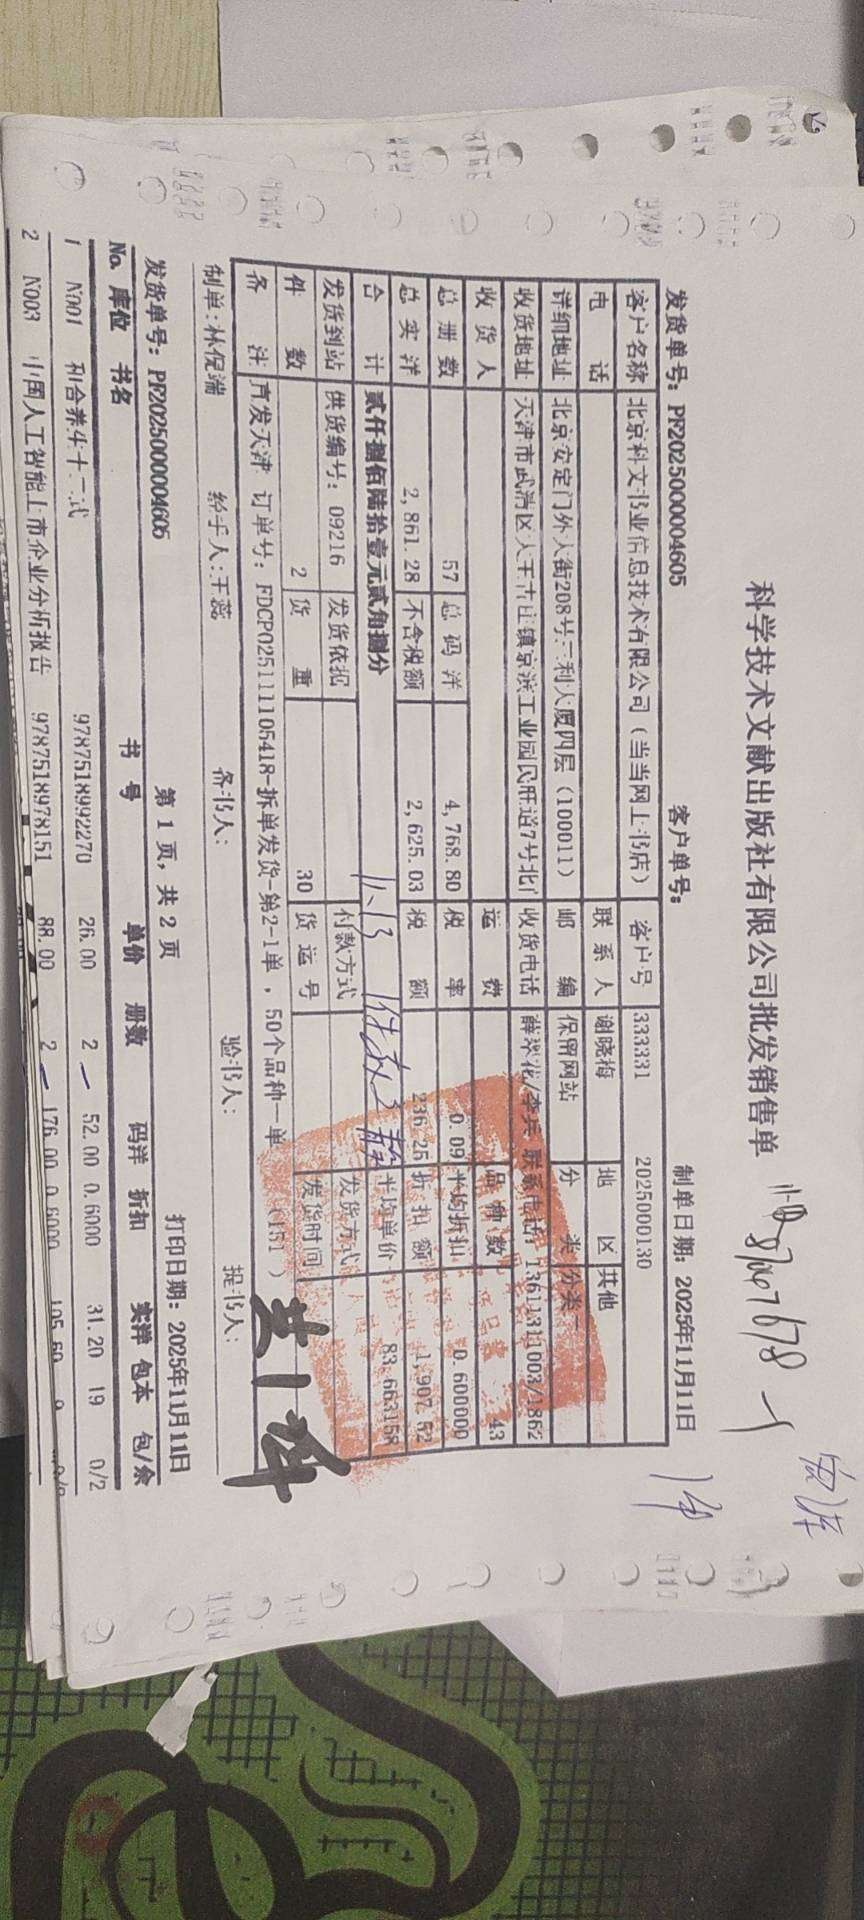 科学技术文献出版社有限公司批发销售单
发货单号：PF2025000004605 客户单号： 制单日期：2025年11月11日
客户名称 北京科文书业信息技术有限公司（当当网上书店） 客户号 333331 2025000130
电 话 联系人 谢晓梅 地 区 其他
详细地址 北京安定门外大街208号三利大厦四层（100011） 邮 编 保留网站 分 类 分类一
收货地址 天津市武清区大王古庄镇京滨工业园民旺道7号北门 收货电话 薛翠花/李兵 联系电话 13611311003/1862
收货人 运 费 品种数 43
总册数 57 总码洋 4,768.80 税 率 0.09 平均折扣 0.600000
总实洋 2,861.28 不含税额 2,625.03 税 额 236.25 折扣额 1,907.52
合 计 贰仟捌佰陆拾壹元贰角捌分 平均单价 83.663158
发货到站 供货编号：09216 发货依据 付款方式 发货方式
件 数 2 货 重 30 货运号 发货时间
备 注 直发天津 订单号：FDCP025111105418-拆单发货-第2-1单，50个品种一单 （151）
制单：林倪端 经手人：王蕊 备书人： 验书人： 提书人：
共1件
发货单号：PF2025000004605 第 1 页，共 2 页 打印日期：2025年11月11日
No. 库位 书名 书 号 单价 册数 码洋 折扣 实洋 包本 包/余
1 N001 和合养生十二式 9787518992270 26.00 2 52.00 0.6000 31.20 19 0/2
2 N003 中国人工智能上市企业分析报告 9787518978151 88.00 2 176.00 0.6000 105.60